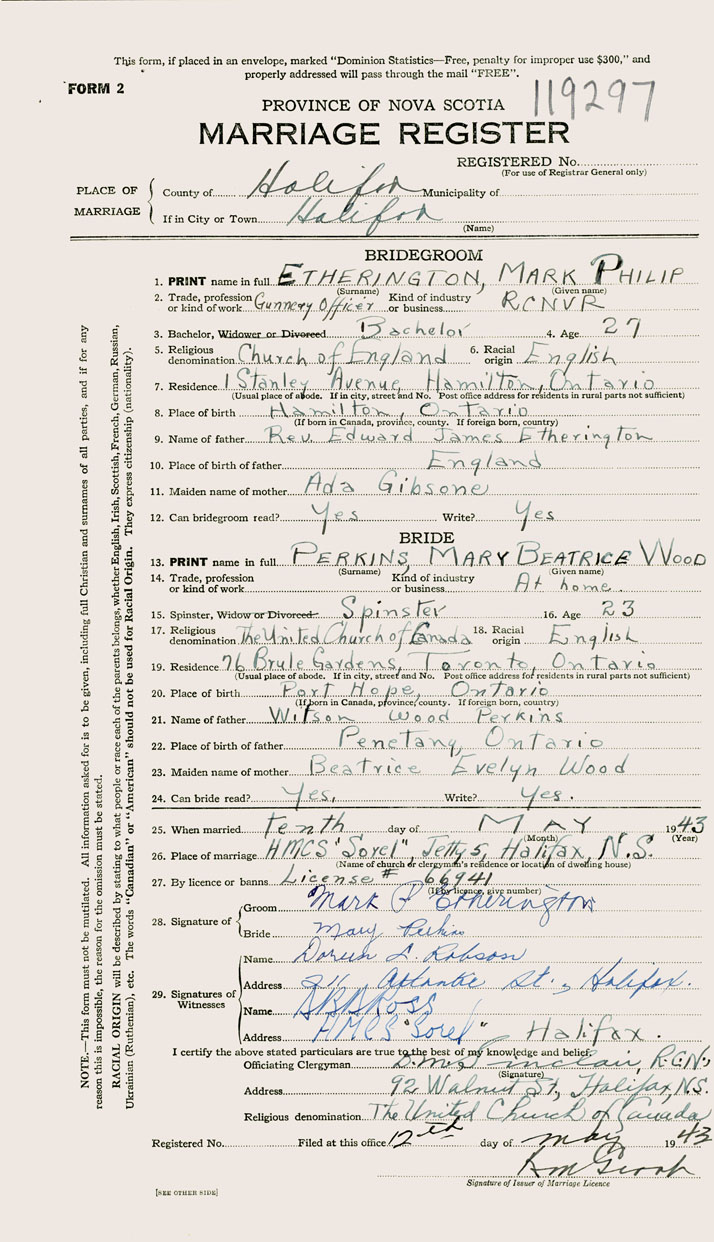 This form, if placed in an envelope, marked "Dominion Statistics—Free, penalty for improper use $300," and
properly addressed will pass through the mail "FREE".
FORM 2
119297
PROVINCE OF NOVA SCOTIA
MARRIAGE REGISTER
REGISTERED No.
(For use of Registrar General only)
PLACE OF MARRIAGE
County of Halifax Municipality of
If in City or Town Halifax
(Name)
BRIDEGROOM
1. PRINT name in full ETHERINGTON, MARK PHILIP
(Surname) (Given name)
2. Trade, profession or kind of work Gunnery Officer Kind of industry or business RCNVR
3. Bachelor, Widower or Divorced Bachelor 4. Age 27
5. Religious denomination Church of England 6. Racial origin English
7. Residence 1 Stanley Avenue, Hamilton, Ontario
(Usual place of abode. If in city, street and No. Post office address for residents in rural parts not sufficient)
8. Place of birth Hamilton, Ontario
(If born in Canada, province, county. If foreign born, country)
9. Name of father Rev. Edward James Etherington
10. Place of birth of father England
11. Maiden name of mother Ada Gibsone
12. Can bridegroom read? Yes Write? Yes
BRIDE
13. PRINT name in full PERKINS, MARY BEATRICE WOOD
(Surname) (Given name)
14. Trade, profession or kind of work Kind of industry or business At home.
15. Spinster, Widow or Divorced. Spinster 16. Age 23
17. Religious denomination The United Church of Canada 18. Racial origin English
19. Residence 76 Brule Gardens, Toronto, Ontario
(Usual place of abode. If in city, street and No. Post office address for residents in rural parts not sufficient)
20. Place of birth Port Hope, Ontario
(If born in Canada, province, county. If foreign born, country)
21. Name of father Witson Wood Perkins
22. Place of birth of father Penetang, Ontario
23. Maiden name of mother Beatrice Evelyn Wood
24. Can bride read? Yes, Write? Yes.
25. When married Tenth day of MAY 1943
(Month) (Year)
26. Place of marriage HMCS "Sorel", Jetty 5, Halifax, N.S.
(Name of church or clergyman's residence or location of dwelling house)
27. By licence or banns License # 66941
(If by licence, give number)
28. Signature of
Groom Mark P Etherington
Bride Mary Perkins
29. Signatures of Witnesses
Name Doreen L. Robson
Address Atlantic St., Halifax.
Name Ross
Address HMCS "Sorel" Halifax.
I certify the above stated particulars are true to the best of my knowledge and belief.
Officiating Clergyman Sinclair, R.C.N.
(Signature)
Address 92 Walnut St, Halifax, N.S.
Religious denomination The United Church of Canada
Registered No. Filed at this office 12th day of may 1943
Signature of Issuer of Marriage Licence
[SEE OTHER SIDE]
NOTE.—This form must not be mutilated. All information asked for is to be given, including full Christian and surnames of all parties, and if for any
reason this is impossible, the reason for the omission must be stated.
RACIAL ORIGIN will be described by stating to what people or race each of the parents belongs, whether English, Irish, Scottish, French, German, Russian,
Ukrainian (Ruthenian), etc. The words "Canadian" or "American" should not be used for Racial Origin. They express citizenship (nationality).